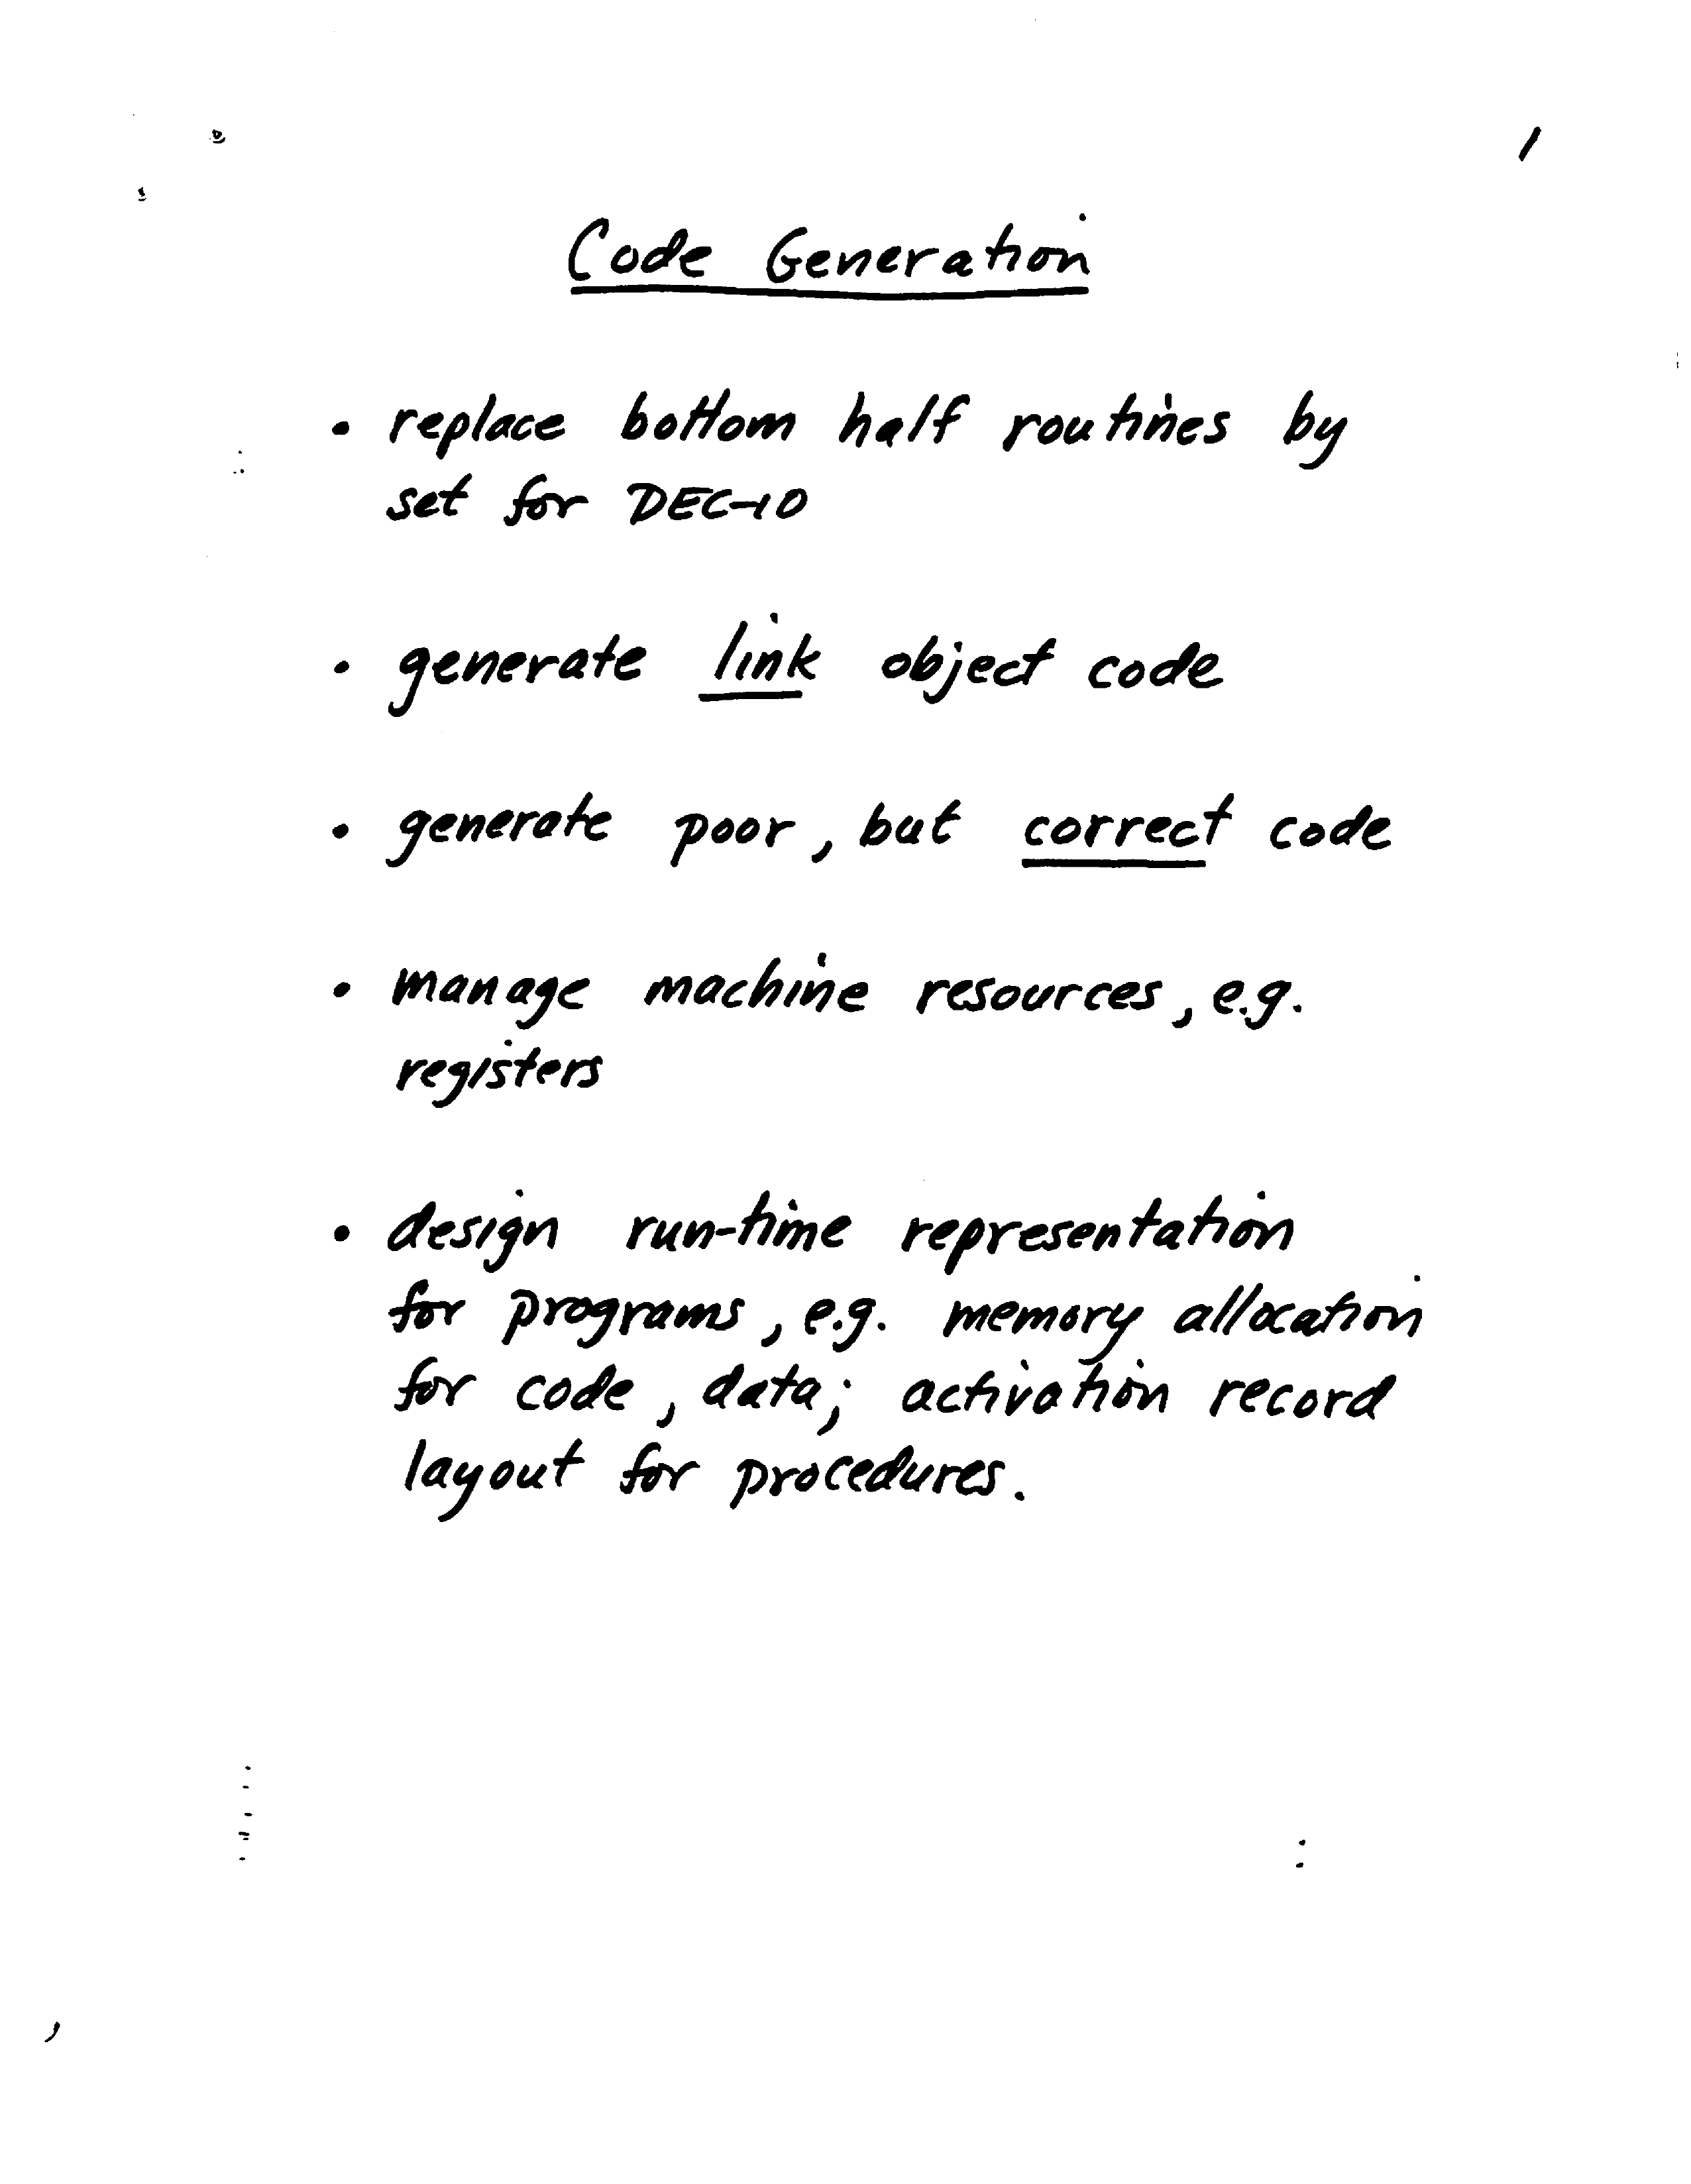 1
Code Generation
• replace bottom half routines by
set for DEC-10
• generate link object code
• generate poor, but correct code
• manage machine resources, e.g.
registers
• design run-time representation
for programs, e.g. memory allocation
for code, data; activation record
layout for procedures.